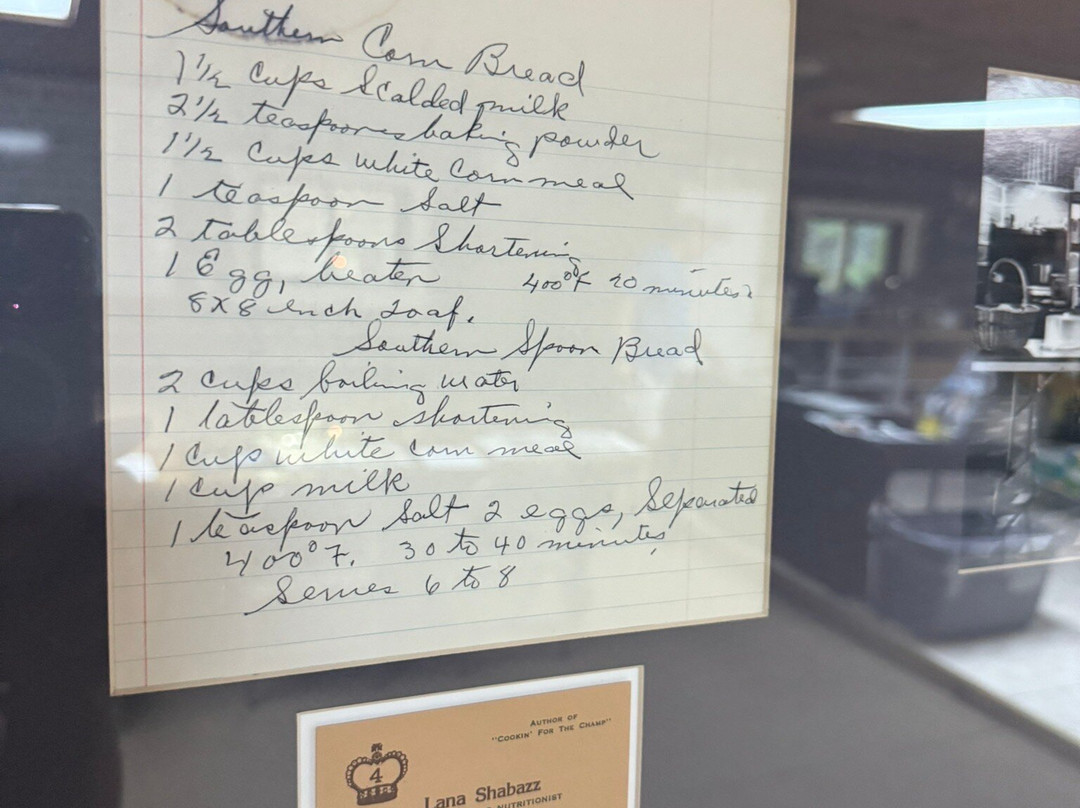 Southern Corn Bread
1 1/2 Cups Scalded milk
2 1/2 teaspoones baking powder
1 1/2 Cups white Corn meal
1 teaspoon Salt
2 tablespoons Shortening
1 Egg, beaten 400°F 20 minutes
8x8 inch Loaf.
Southern Spoon Bread
2 cups boiling water
1 tablespoon shortening
1 Cup white corn meal
1 cup milk
1 teaspoon Salt 2 eggs, Separated
400°F. 30 to 40 minutes
Serves 6 to 8
AUTHOR OF
"COOKIN' FOR THE CHAMP"
4
Lana Shabazz
NUTRITIONIST